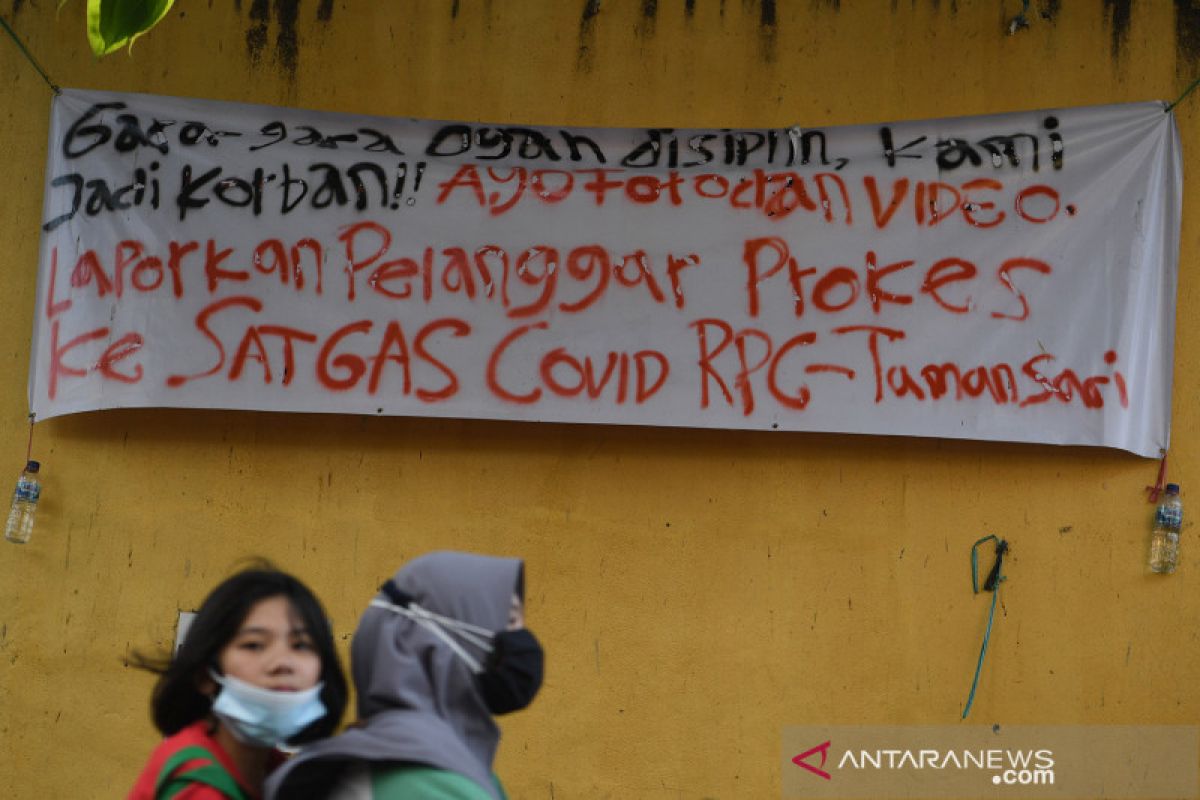 Gara-gara ogan disiplin, kami
Jadi Korban!! Ayo Foto dan VIDEO.
Laporkan Pelanggar Prokes
Ke SATGAS COVID RPC-Tamansari
ANTARANEWS
.com